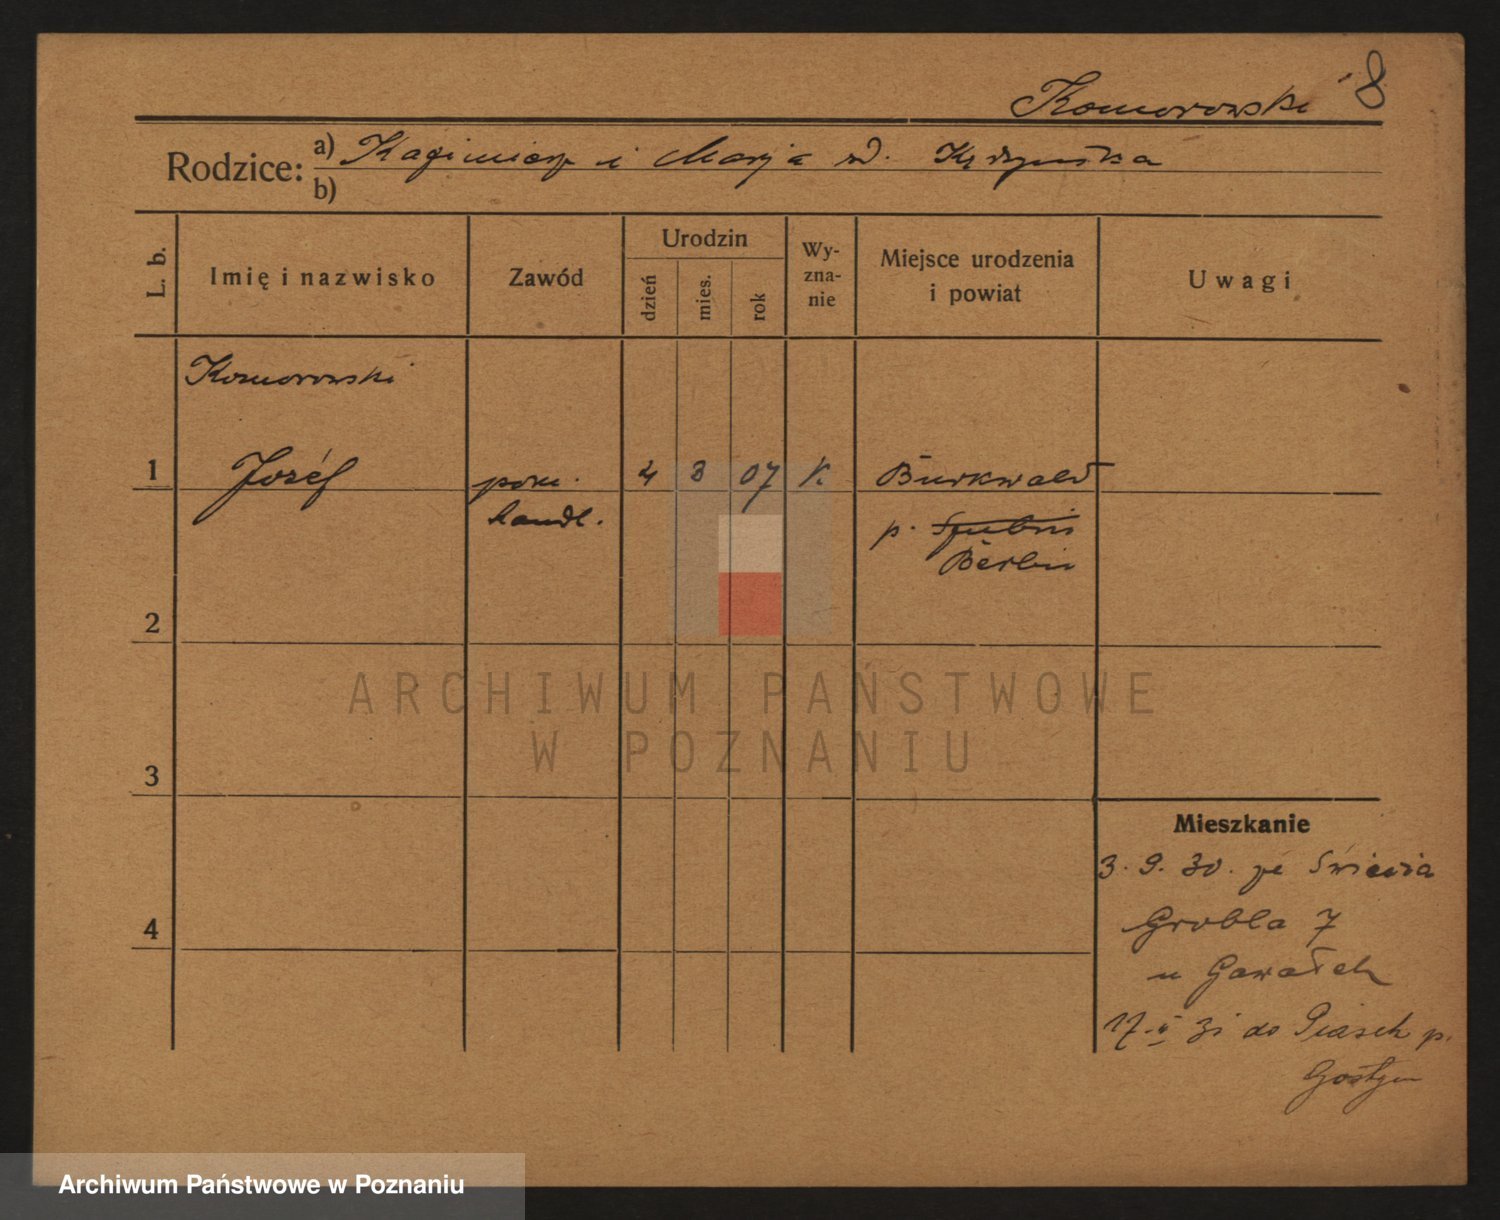 Komorowski 8
Rodzice: a) Kazimierz i Marja ur. Kędzynska
b)
L. b.
Imię i nazwisko
Zawód
Urodzin
dzień
mies.
rok
Wy-
zna-
nie
Miejsce urodzenia
i powiat
Uwagi
Komorowski
1 Józef pom. 4 3 07 K. Burkwald
handl. p.
Berlin
2
3
4
Mieszkanie
3.9.30.
Grobla 7
u Gawałek
17. 31 do Piasek p.
Gostyn
ARCHIWUM PAŃSTWOWE
W POZNANIU
Archiwum Państwowe w Poznaniu